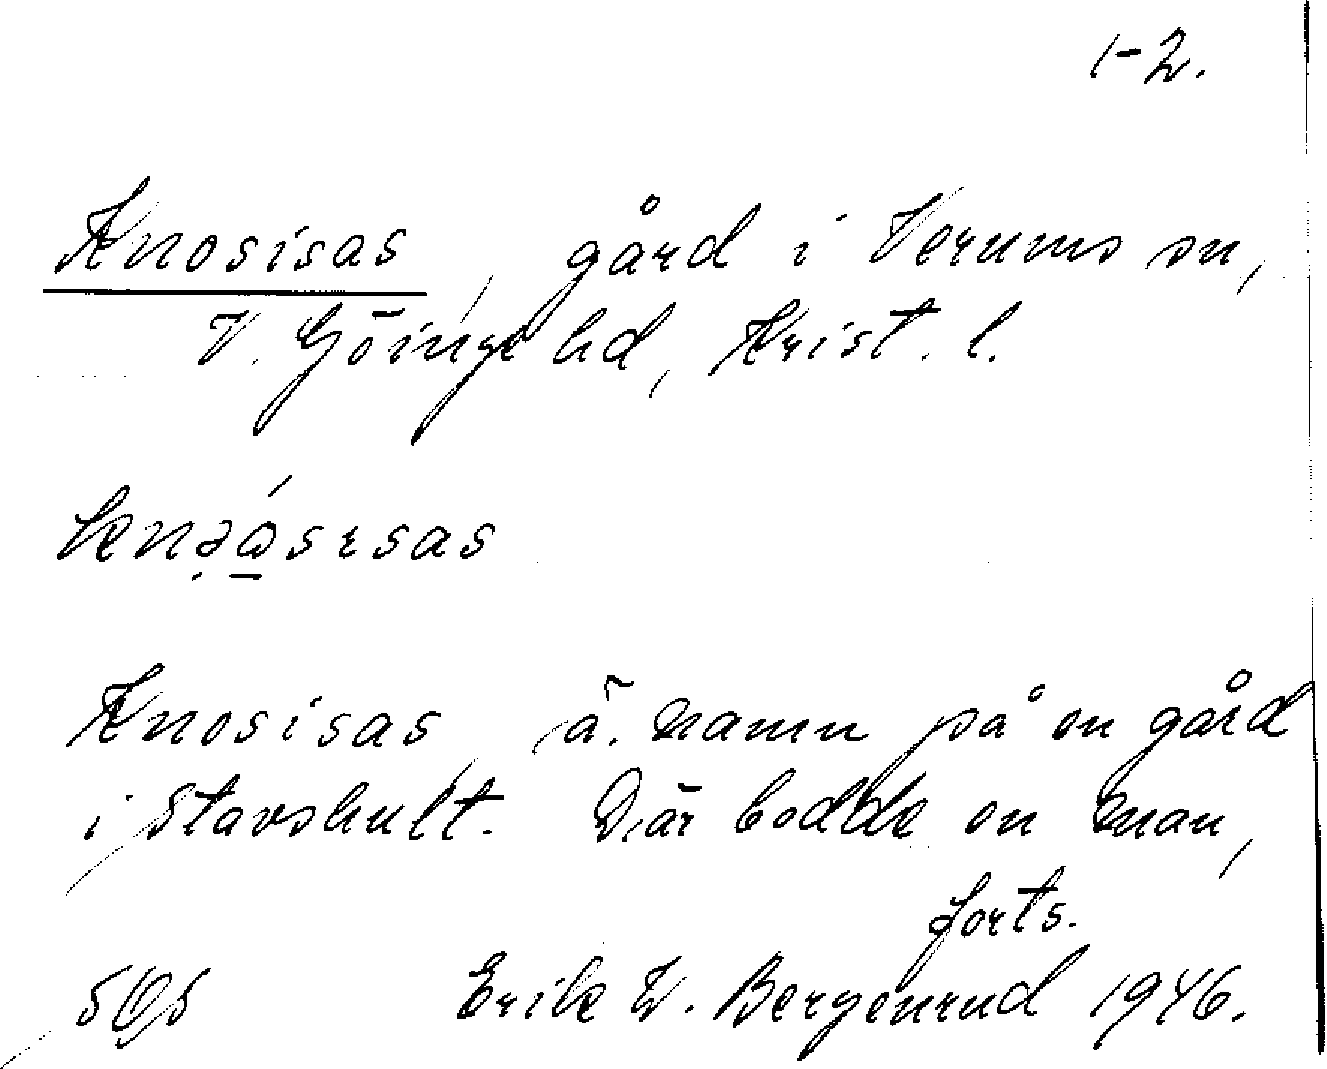 1-2.
Knosisas, gård i Verums sn,
V. Göinge hd, Krist. l.
Knosisas, ä. namn på en gård
i Stavshult. Där bodde en man,
forts.
Erik W. Bergenrud 1946.